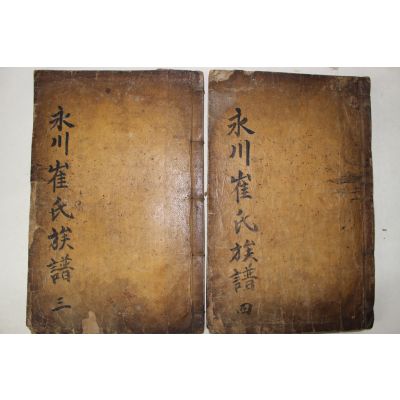 永川崔氏族譜 三
永川崔氏族譜 四